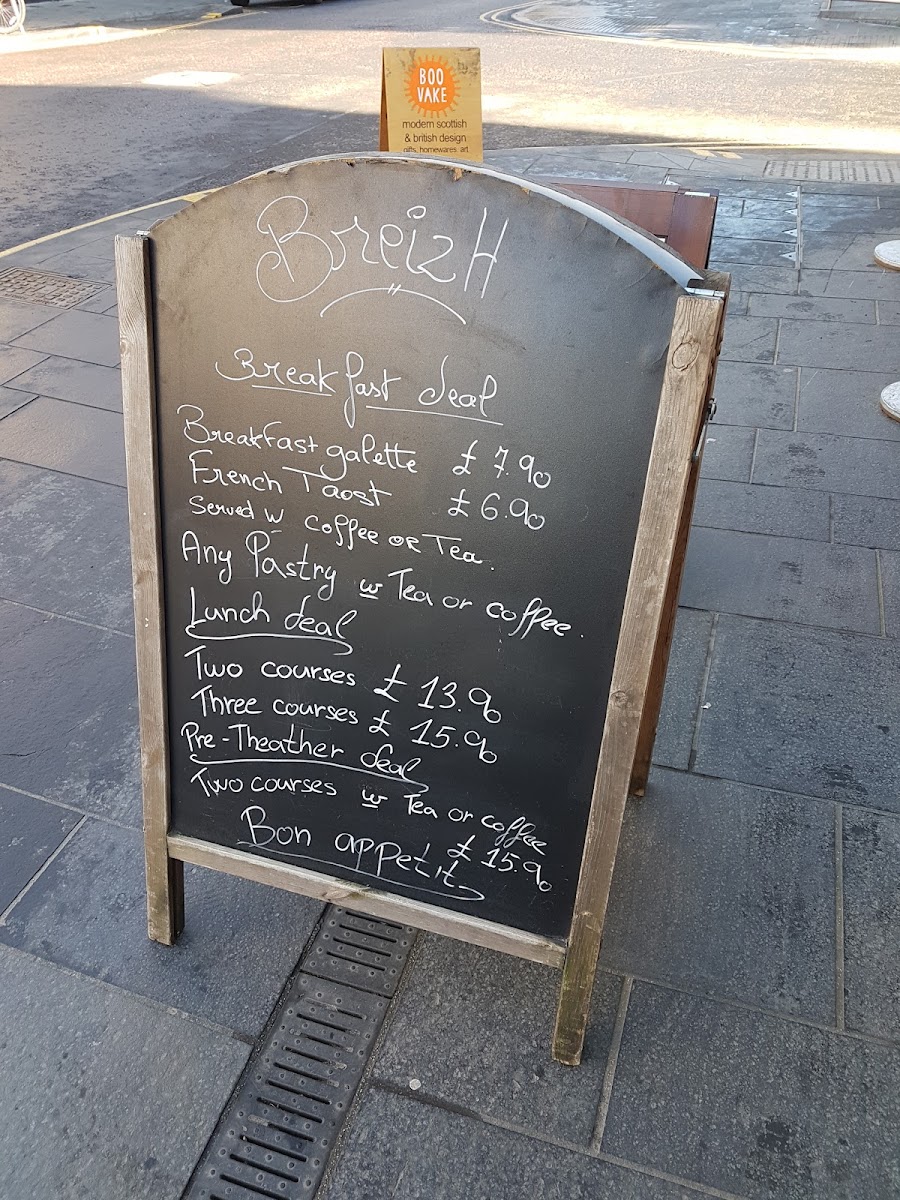 BOO
VAKE
modern scottish
& british design
gifts, homewares, art
BreizH
Breakfast deal
Breakfast galette £ 7.90
French Taost £ 6.90
Served w coffee or Tea.
Any Pastry w Tea or coffee.
Lunch deal
Two courses £ 13.90
Three courses £ 15.90
Pre-Theather deal
Two courses w Tea or coffee
£ 15.90
Bon appetit